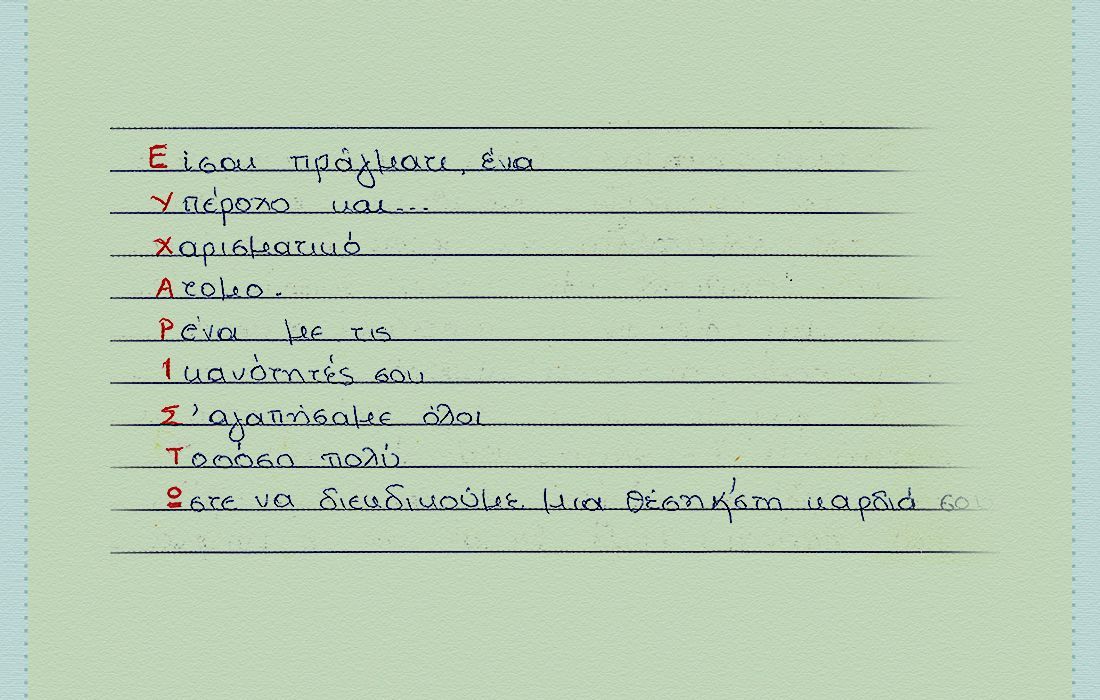 Είσαι πράγματι, ένα
Υπέροχο και...
Χαρισματικό
Ατομο.
Ρένα με τις
Ικανότητές σου
Σ' αγαπήσαμε όλοι
Τοσόσο πολύ
Ωστε να διεκδικούμε μια θέση κ' στη καρδιά σου